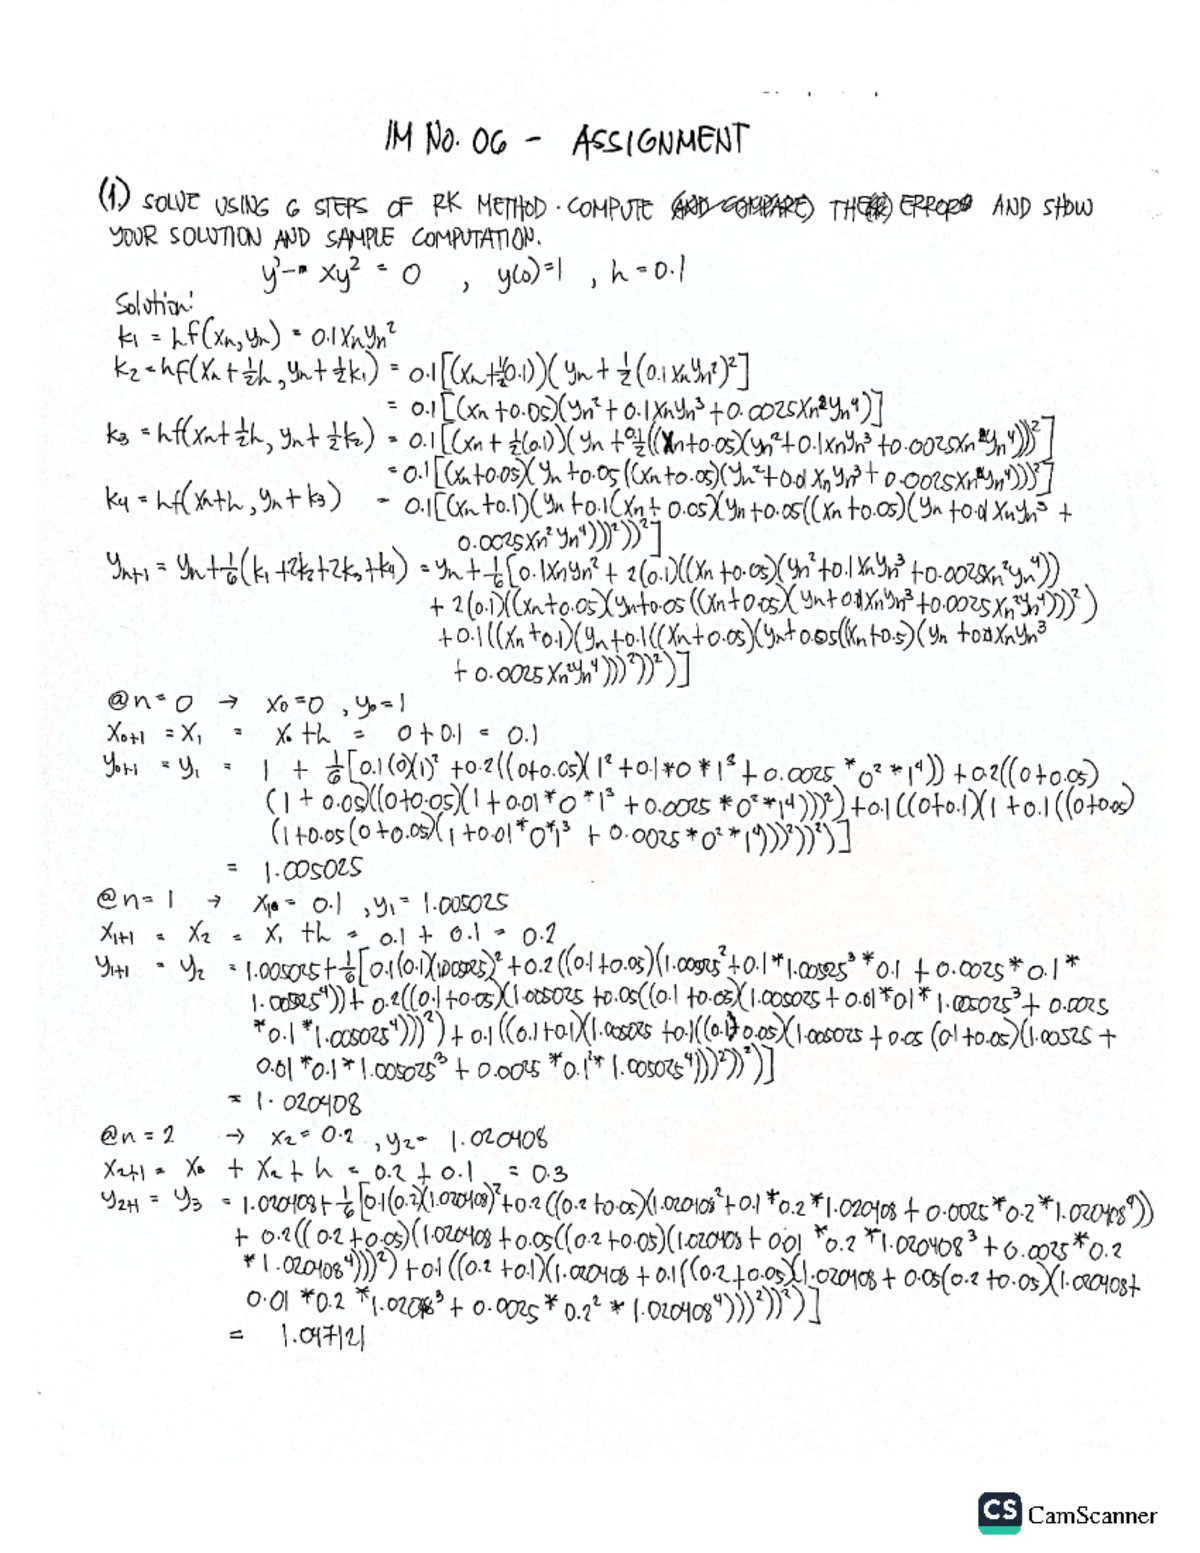 IM No. 06 - ASSIGNMENT
(1.) SOLVE USING 6 STEPS OF RK METHOD. COMPUTE (AND COMPARE) THE ERROR AND SHOW
YOUR SOLUTION AND SAMPLE COMPUTATION.
y' - xy² = 0 , y(0)=1 , h = 0.1
Solution:
k₁ = hf(xₙ,yₙ) = 0.1xₙyₙ²
k₂ = hf(xₙ+½h, yₙ+½k₁) = 0.1[(xₙ+½(0.1))(yₙ+½(0.1xₙyₙ²)²]
= 0.1[(xₙ+0.05)(yₙ²+0.1xₙyₙ³+0.0025xₙ²yₙ⁴)]
k₃ = hf(xₙ+½h, yₙ+½k₂) = 0.1[(xₙ+½(0.1))(yₙ+0.½((xₙ+0.05)(yₙ²+0.1xₙyₙ³+0.0025xₙ²yₙ⁴)))²]
= 0.1[(xₙ+0.05)(yₙ+0.05((xₙ+0.05)(yₙ²+0.01xₙyₙ³+0.0025xₙ²yₙ⁴)))²]
k₄ = hf(xₙ+h, yₙ+k₃) = 0.1[(xₙ+0.1)(yₙ+0.1(xₙ+0.05)(yₙ+0.05((xₙ+0.05)(yₙ+0.01xₙyₙ³+
0.0025xₙ²yₙ⁴)))²))²]
yₙ₊₁ = yₙ+⅙(k₁+2k₂+2k₃+k₄) = yₙ+⅙[0.1xₙyₙ²+2(0.1)((xₙ+0.05)(yₙ²+0.1xₙyₙ³+0.0025xₙ²yₙ⁴))
+2(0.1)((xₙ+0.05)(yₙ+0.05((xₙ+0.05)(yₙ+0.01xₙyₙ³+0.0025xₙ²yₙ⁴)))²)
+0.1((xₙ+0.1)(yₙ+0.1((xₙ+0.05)(yₙ+0.05((xₙ+0.5)(yₙ+0.01xₙyₙ³
+0.0025xₙ²yₙ⁴)))²))²)]
@n=0 → x₀=0 , y₀=1
x₀₊₁ = x₁ = x₀+h = 0+0.1 = 0.1
y₀₊₁ = y₁ = 1 + ⅙[0.1(0)(1)²+0.2((0+0.05)(1²+0.1*0*1³+0.0025*0²*1⁴))+0.2((0+0.05)
(1+0.05)((0+0.05)(1+0.01*0*1³+0.0025*0²*1⁴)))²)+0.1((0+0.1)(1+0.1((0+0.05)
(1+0.05(0+0.05)(1+0.01*0*1³+0.0025*0²*1⁴)))²))²)]
= 1.005025
@n=1 → x₁ = 0.1 , y₁ = 1.005025
x₁₊₁ = x₂ = x₁+h = 0.1+0.1 = 0.2
y₁₊₁ = y₂ = 1.005025+⅙[0.1(0.1)(1.005025)²+0.2((0.1+0.05)(1.00525²+0.1*1.00525³*0.1+0.0025*0.1*
1.00525⁴))+0.2((0.1+0.05)(1.005025+0.05((0.1+0.05)(1.005025+0.01*0.1*1.005025³+0.0025
*0.1*1.005025⁴)))²)+0.1((0.1+0.1)(1.005025+0.1((0.1+0.05)(1.005025+0.05(0.1+0.05)(1.00525+
0.01*0.1*1.005025³+0.0025*0.1²*1.005025⁴)))²))²)]
= 1.020408
@n=2 → x₂=0.2 , y₂= 1.020408
x₂₊₁ = x₃ + x₂+h = 0.2+0.1 = 0.3
y₂₊₁ = y₃ = 1.020408+⅙[0.1(0.2)(1.020408)²+0.2((0.2+0.05)(1.020408²+0.1*0.2*1.020408+0.0025*0.2*1.020408⁴))
+0.2((0.2+0.05)(1.020408+0.05((0.2+0.05)(1.020408+0.01*0.2*1.020408³+0.0025*0.2
*1.020408⁴)))²)+0.1((0.2+0.1)(1.020408+0.1((0.2+0.05)(1.020408+0.05(0.2+0.05)(1.020408+
0.01*0.2*1.020408³+0.0025*0.2²*1.020408⁴)))²))²)]
= 1.047121
CS CamScanner